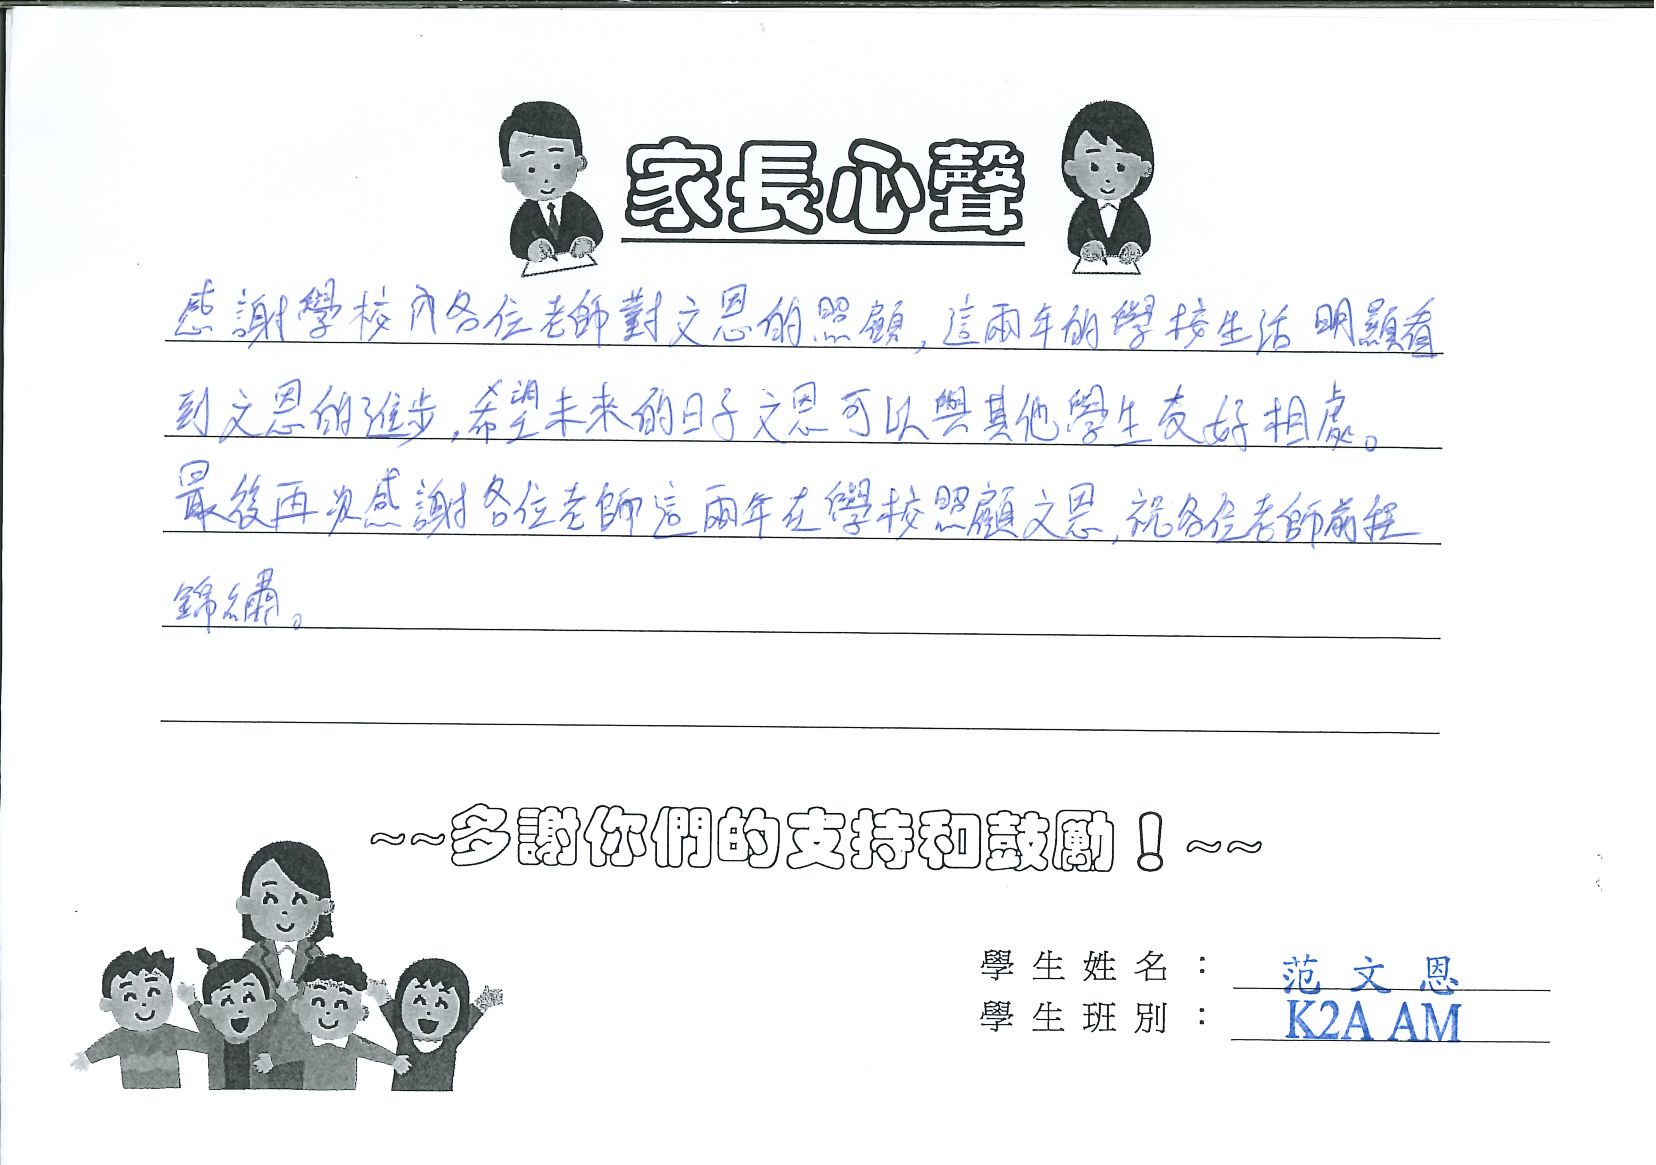 家長心聲
感謝學校內各位老師對文恩的照顧,這兩年的學校生活明顯看
到文恩的進步,希望未來的日子文恩可以與其他學生友好相處。
最後再次感謝各位老師這兩年在學校照顧文恩,祝各位老師前程
錦繡。
~~多謝你們的支持和鼓勵!~~
學生姓名：范文恩
學生班別：K2A AM